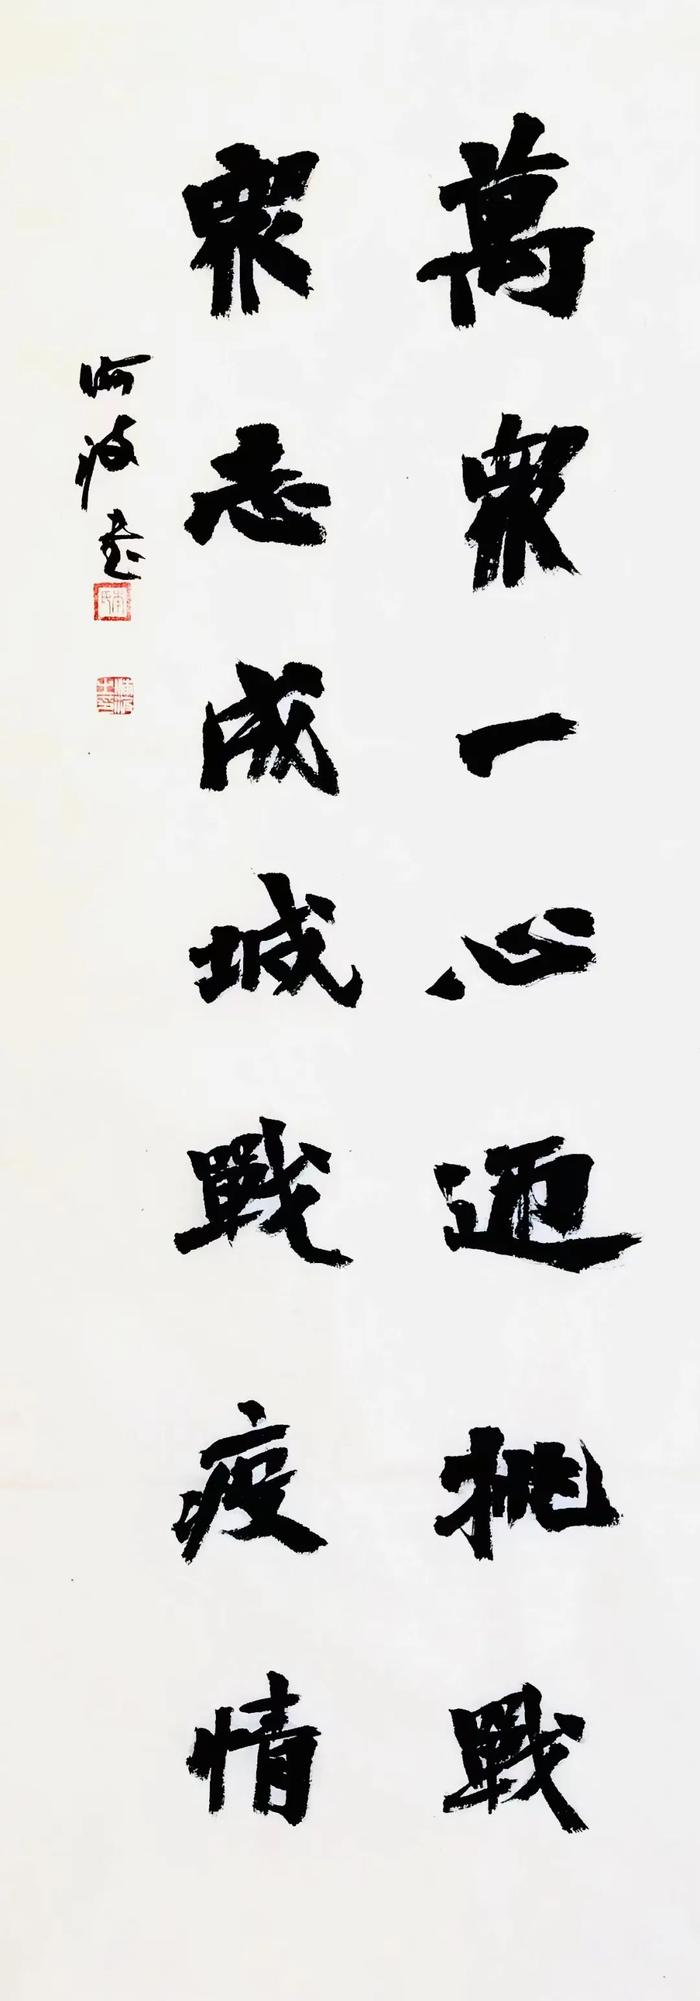 萬衆一心迎挑戰
衆志成城戰疫情